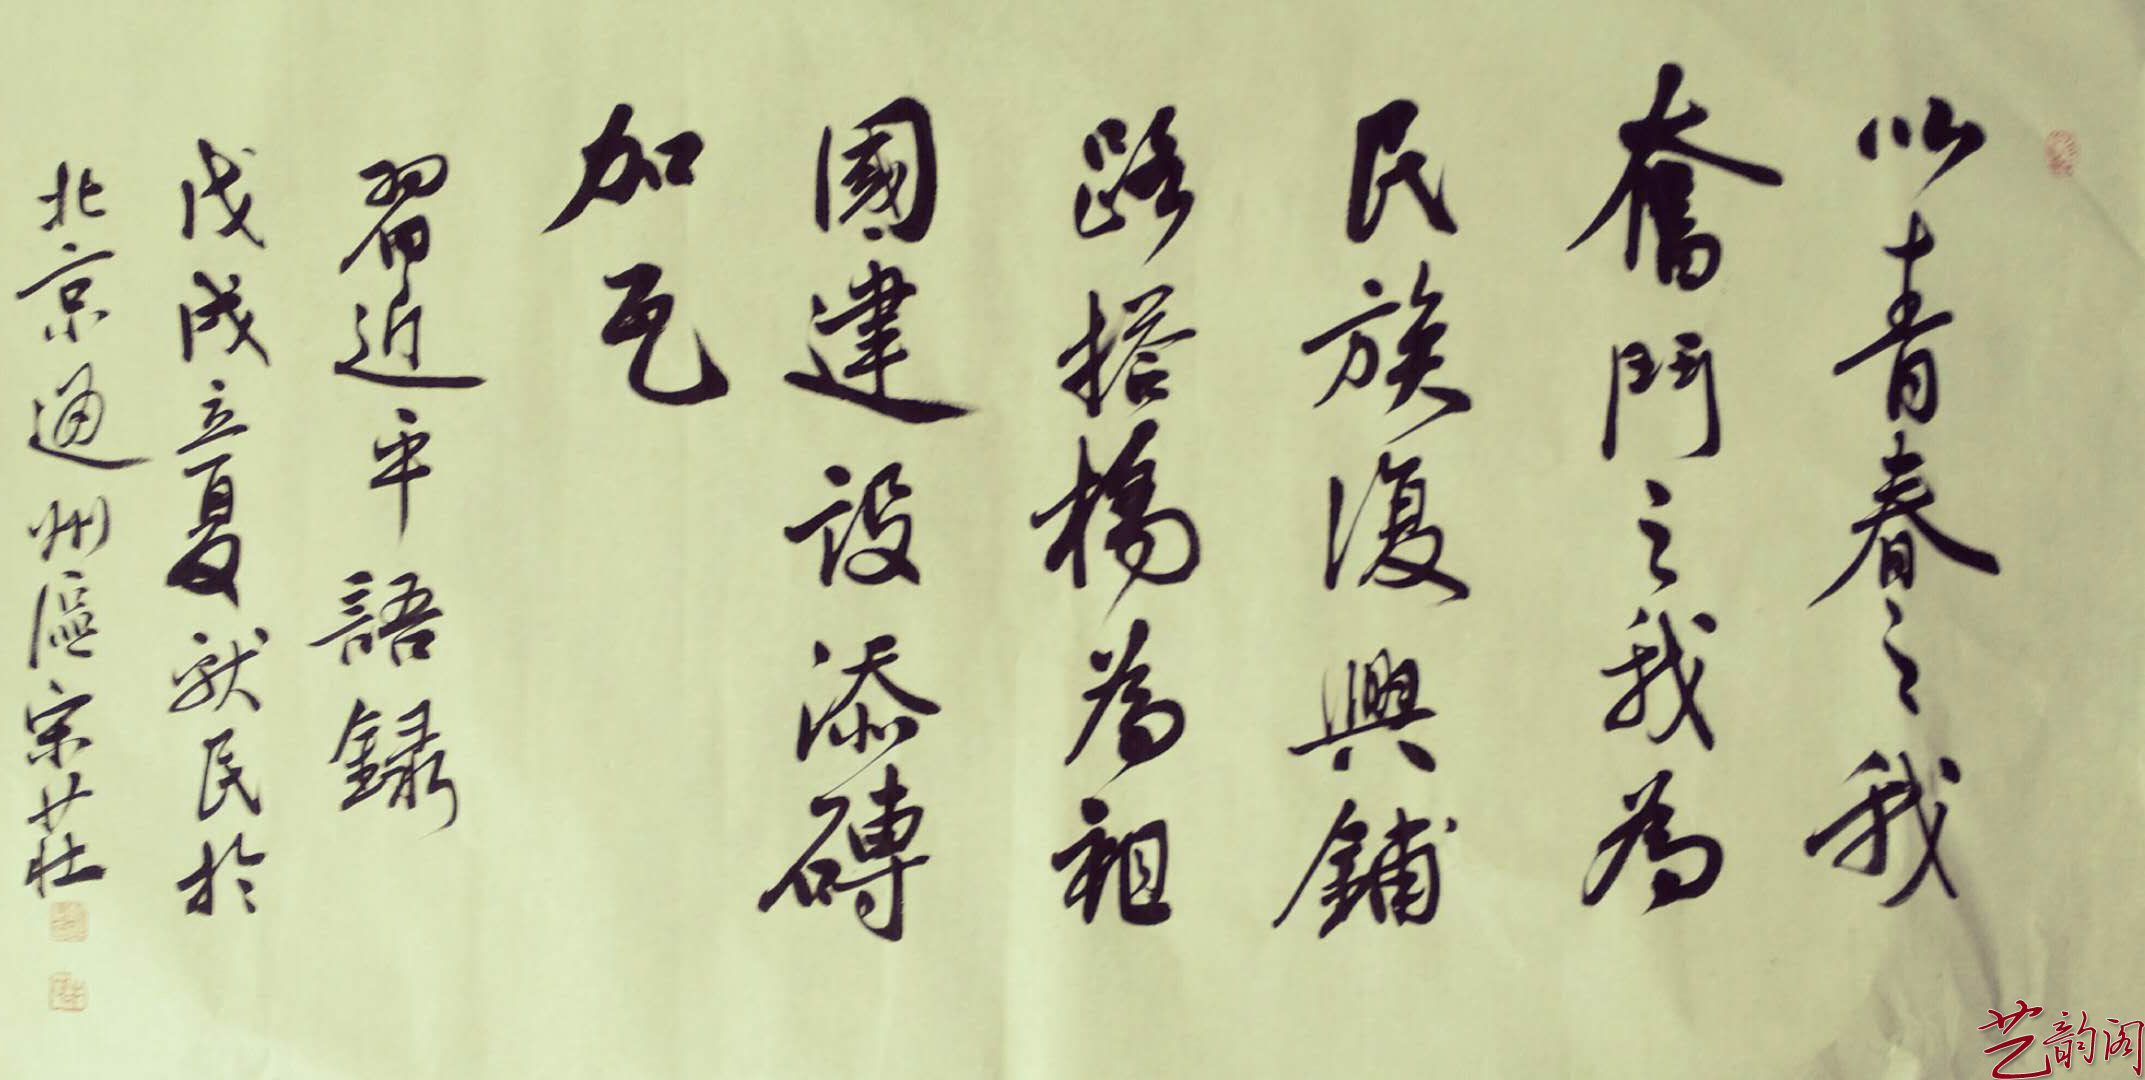 以青春之我
奮鬥之我為
民族復興鋪
路搭橋為祖
國建設添磚
加瓦
習近平語錄
戊戌立夏献民於
北京通州區宋莊
艺韵阁